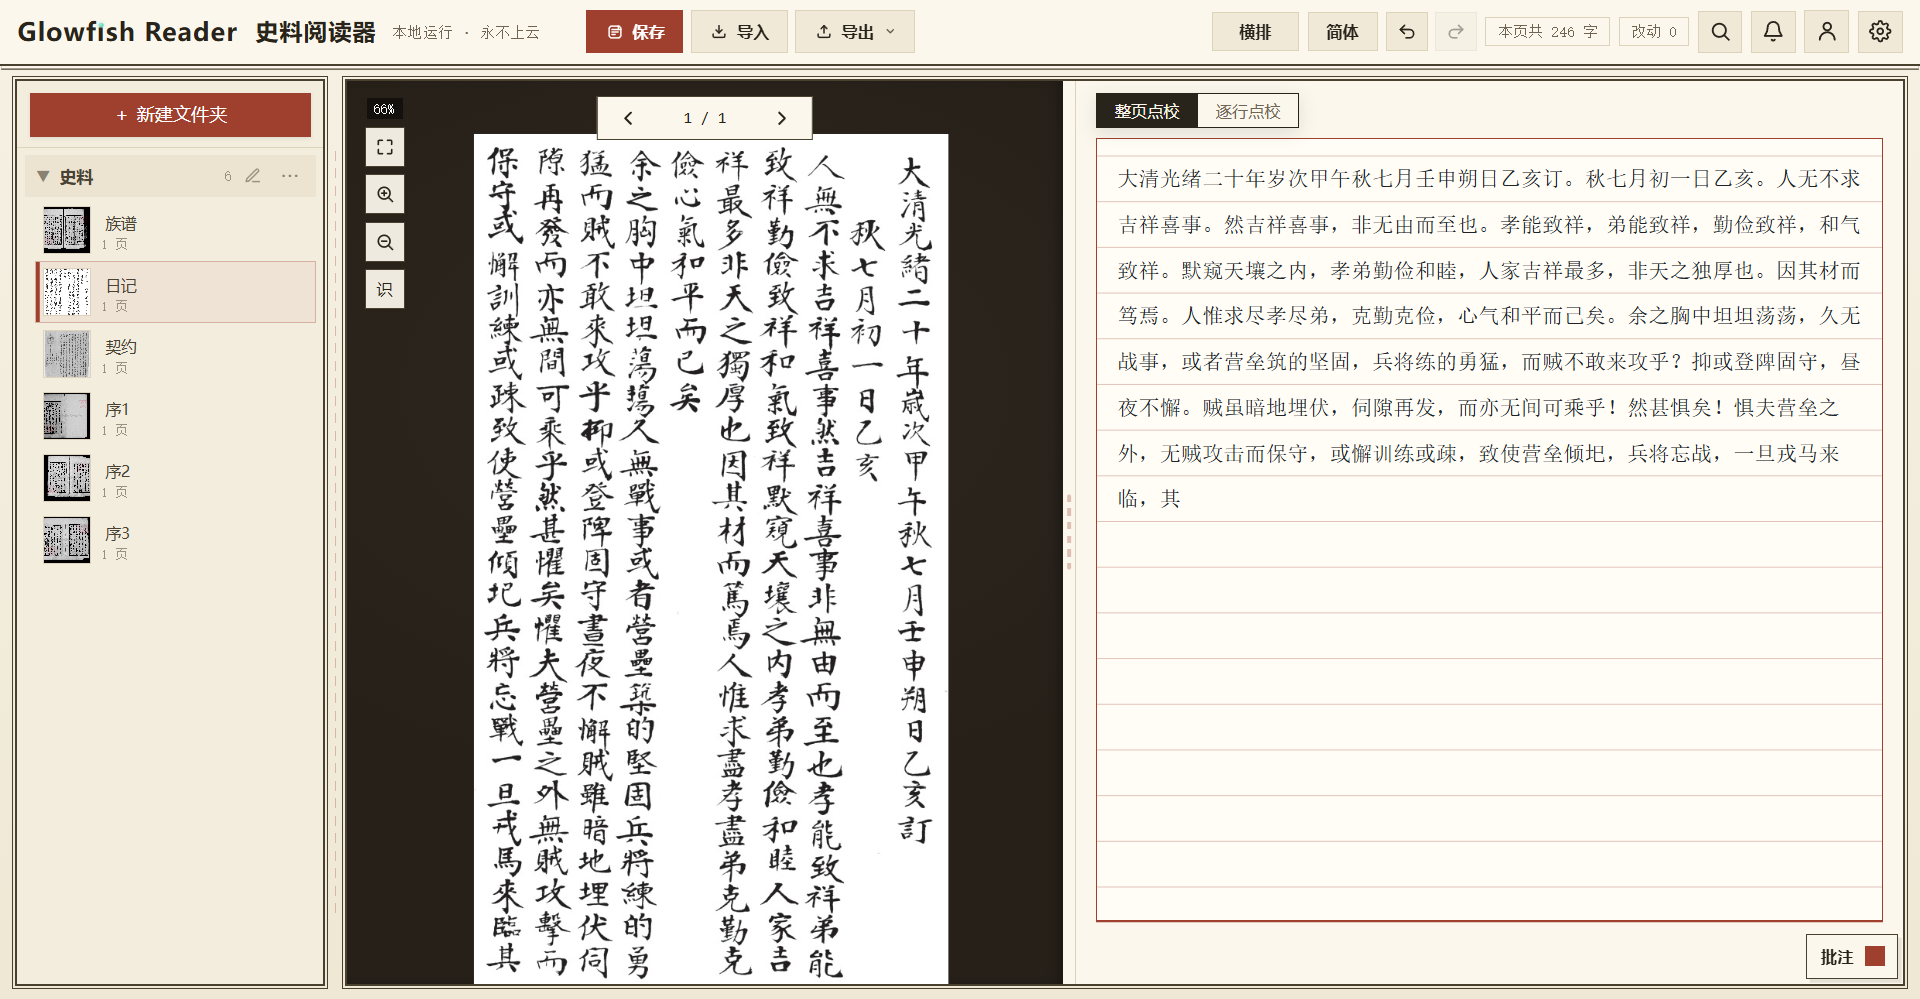 Glowfish Reader 史料阅读器 本地运行 · 永不上云
保存
导入
导出
横排
简体
本页共 246 字
改动 0
+ 新建文件夹
史料 6
族谱
1 页
日记
1 页
契约
1 页
序1
1 页
序2
1 页
序3
1 页
66%
识
1 / 1
大清光緒二十年歲次甲午秋七月壬申朔日乙亥訂
秋七月初一日乙亥
人無不求吉祥喜事然吉祥喜事非無由而至也孝能致祥弟能
致祥勤儉致祥和氣致祥默窺天壤之内孝弟勤儉和睦人家吉
祥最多非天之獨厚也因其材而篤焉人惟求盡孝盡弟克勤克
儉心氣和平而已矣
余之胸中坦坦蕩蕩久無戰事或者營壘築的堅固兵將練的勇
猛而賊不敢來攻乎抑或登陴固守晝夜不懈賊雖暗地埋伏伺
隙再發而亦無間可乘乎然甚懼矣懼夫營壘之外無賊攻擊而
保守或懈訓練或疎致使營壘傾圮兵將忘戰一旦戎馬來臨其
整页点校
逐行点校
大清光绪二十年岁次甲午秋七月壬申朔日乙亥订。秋七月初一日乙亥。人无不求
吉祥喜事。然吉祥喜事，非无由而至也。孝能致祥，弟能致祥，勤俭致祥，和气
致祥。默窥天壤之内，孝弟勤俭和睦，人家吉祥最多，非天之独厚也。因其材而
笃焉。人惟求尽孝尽弟，克勤克俭，心气和平而己矣。余之胸中坦坦荡荡，久无
战事，或者营垒筑的坚固，兵将练的勇猛，而贼不敢来攻乎？抑或登陴固守，昼
夜不懈。贼虽暗地埋伏，伺隙再发，而亦无间可乘乎！然甚惧矣！惧夫营垒之
外，无贼攻击而保守，或懈训练或疎，致使营垒倾圮，兵将忘战，一旦戎马来
临，其
批注